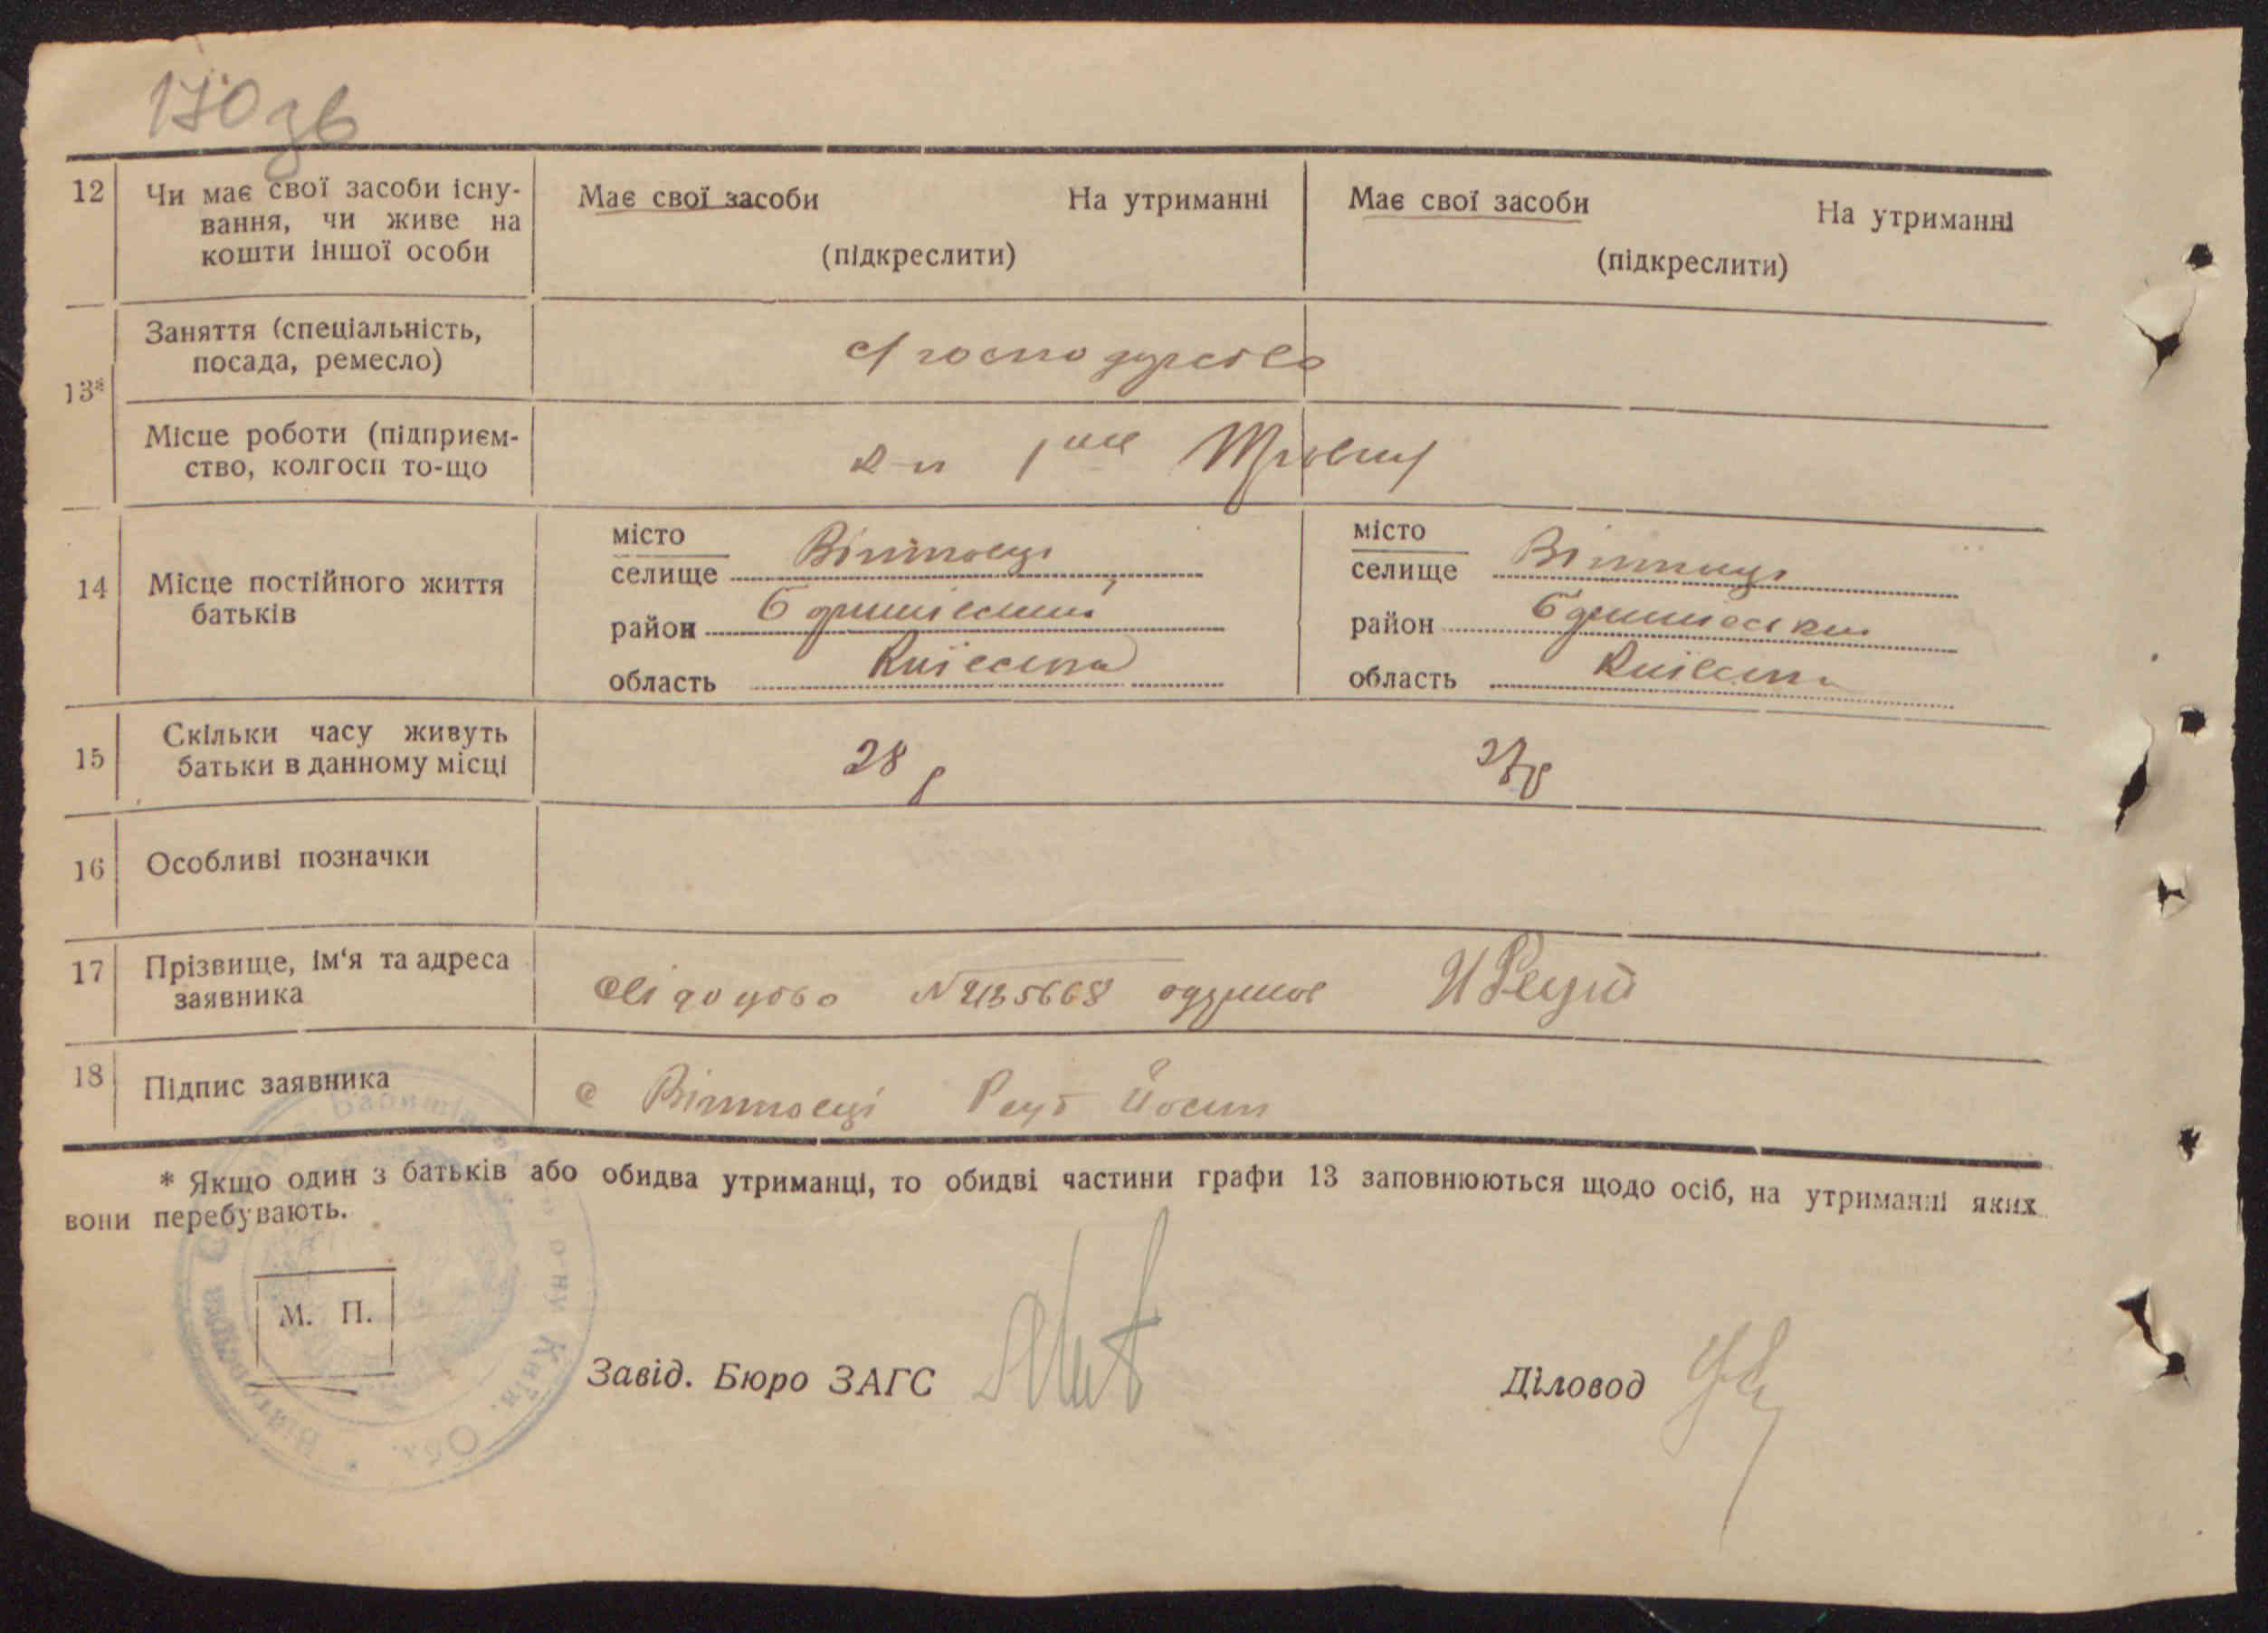 170 зв
12 Чи має свої засоби існу-
вання, чи живе на
кошти іншої особи
Має свої засоби На утриманні
(підкреслити)
Має свої засоби На утриманні
(підкреслити)
13* Заняття (спеціальність,
посада, ремесло)
с/господарство
Місце роботи (підприєм-
ство, колгосп то-що
к-п 1ше Травня
14 Місце постійного життя
батьків
місто
селище Вітовці
район Баришівський
область Київська
місто
селище Вітовці
район Баришівський
область Київська
15 Скільки часу живуть
батьки в данному місці
28 р
27 р
16 Особливі позначки
17 Прізвище, ім'я та адреса
заявника
свідоцтво одержав И Реут
18 Підпис заявника
с Вітовці Реут Йосип
* Якщо один з батьків або обидва утриманці, то обидві частини графи 13 заповнюються щодо осіб, на утриманні яких
вони перебувають.
М. П.
Завід. Бюро ЗАГС
Діловод